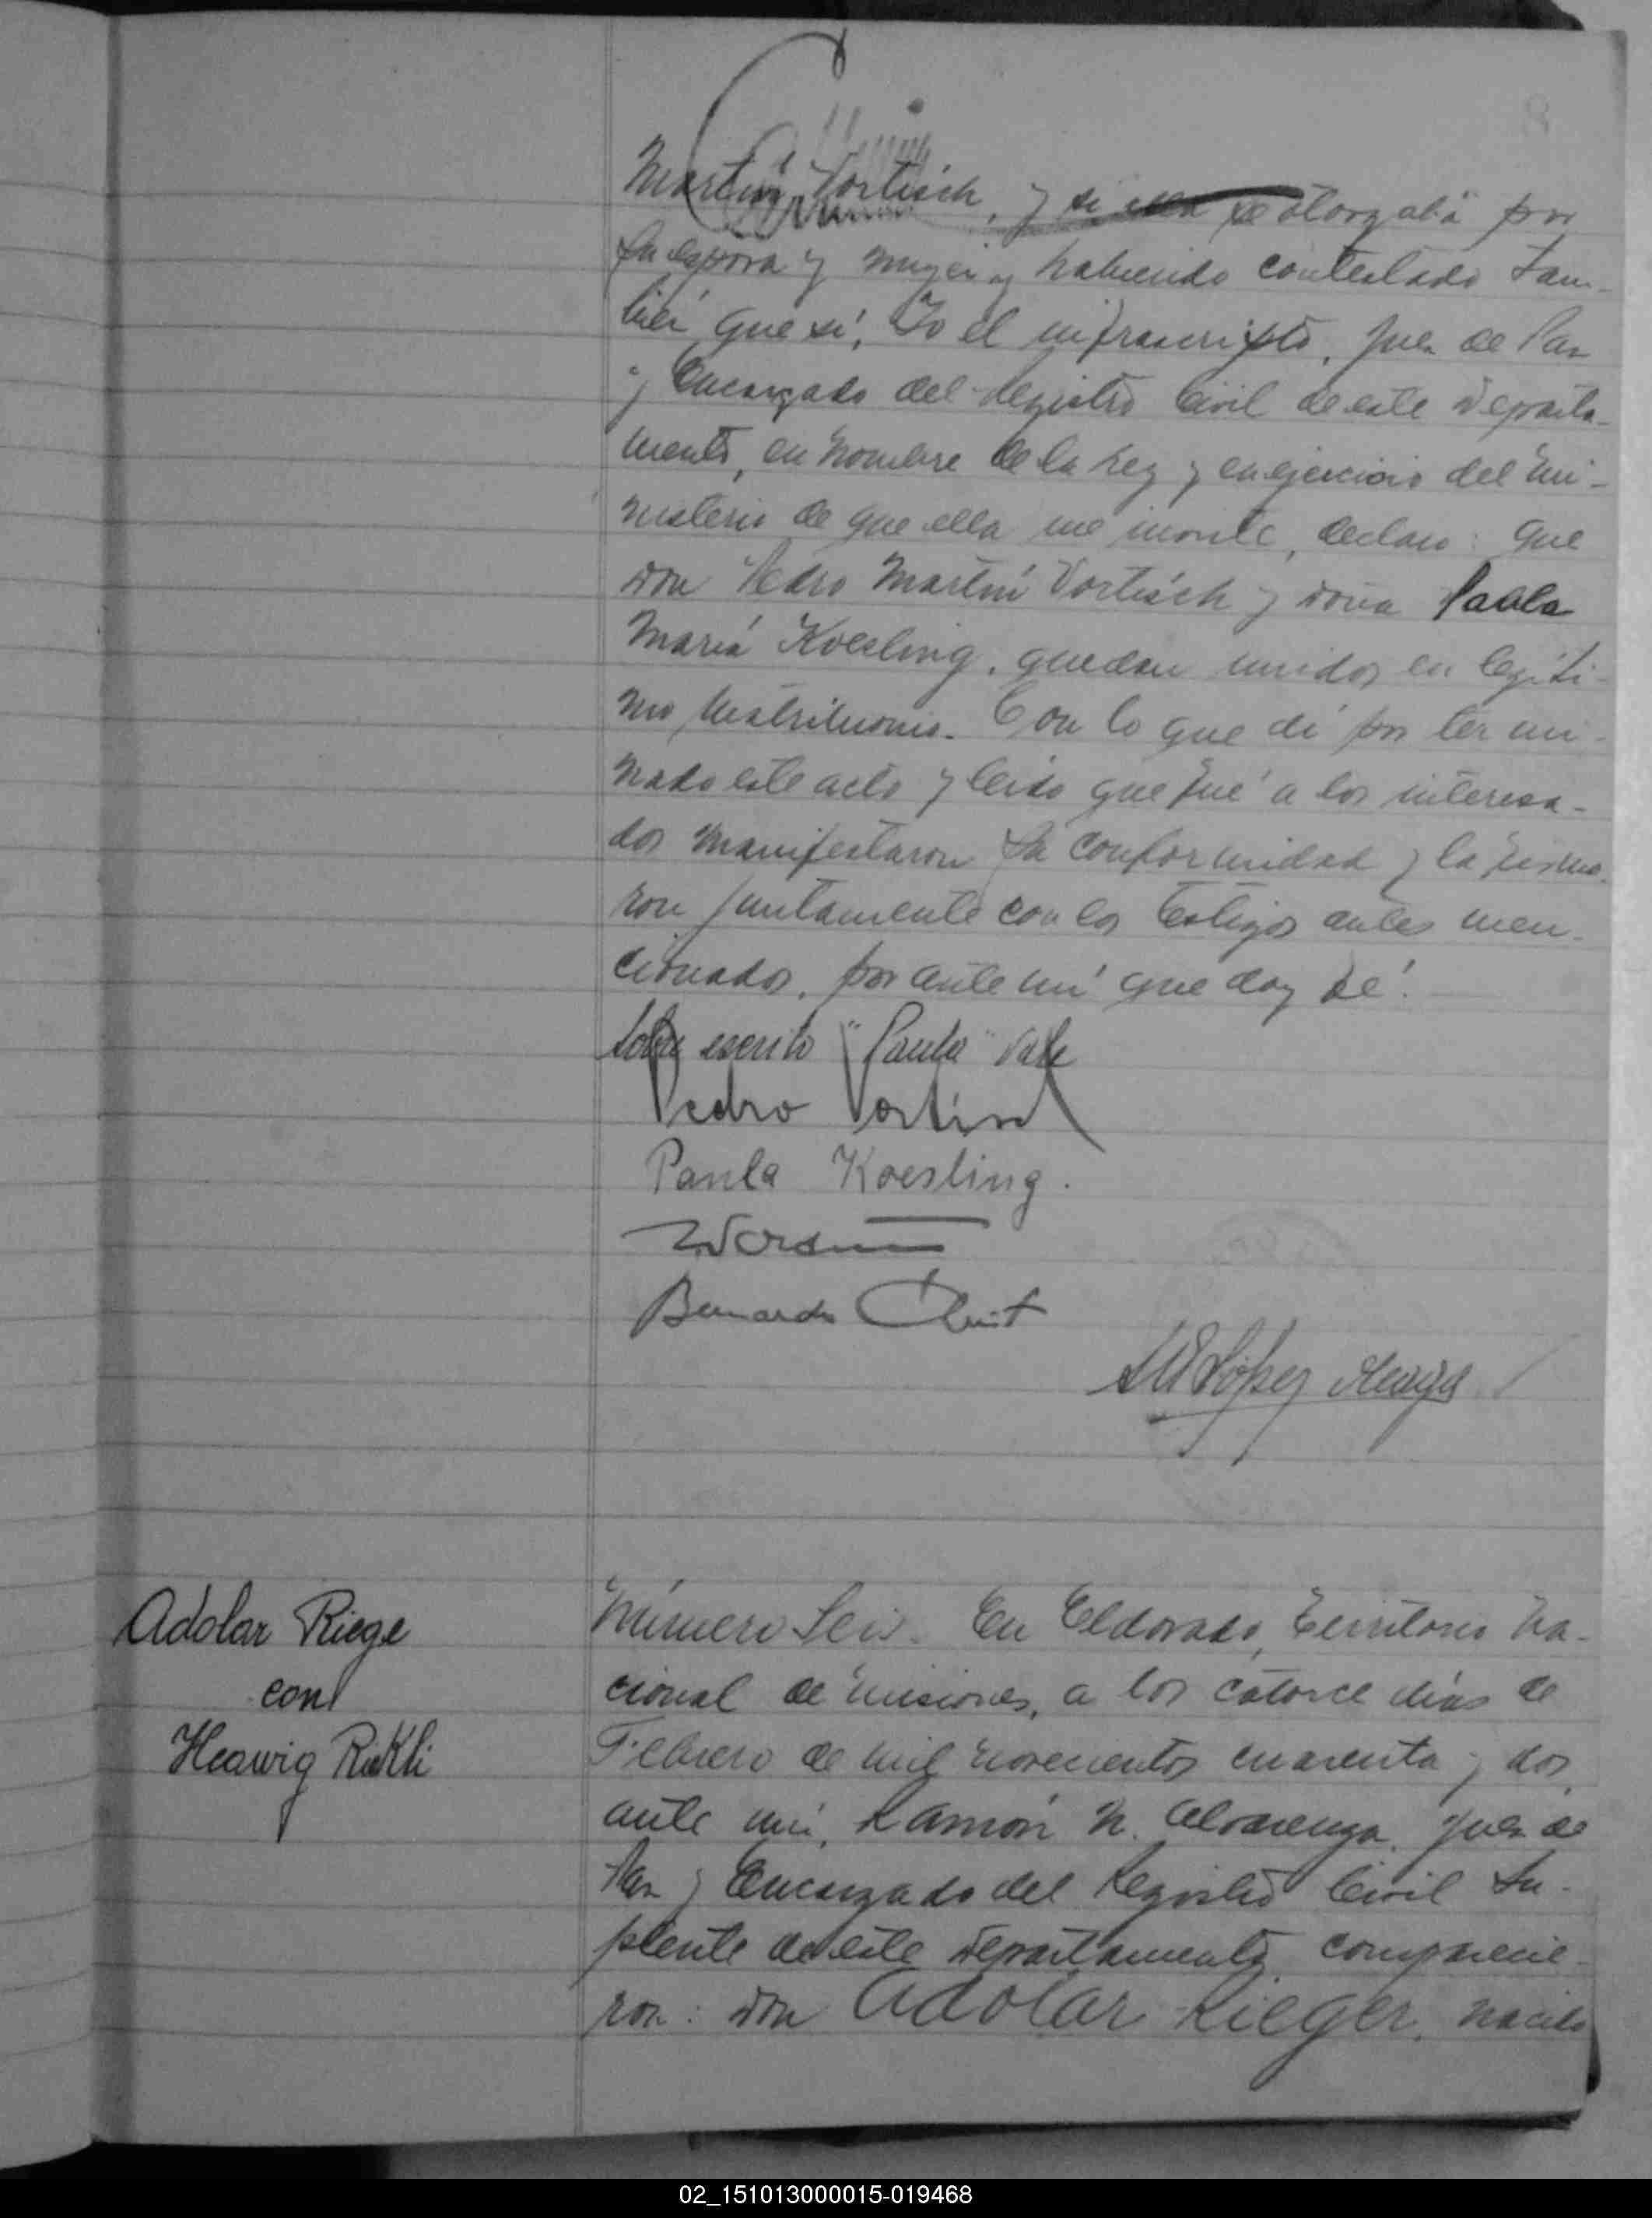 Martín Vortisch, y si ella se otorgaba por
su esposa y mujer y habiendo contestado tam-
bién que si, Yo el infrascripto, Juez de Paz
y Encargado del Registro Civil de este Departa-
mento, en nombre de la Ley y en ejercicio del mi-
nisterio de que ella me inviste, declaro: que
Don Pedro Martín Vortisch y doña Paula
María Koesling, quedan unidos en legíti-
mo Matrimonio. Con lo que dí por termi-
nado este acto y leído que fué a los interesa-
dos manifestaron su conformidad y la firma-
ron juntamente con los testigos antes men-
cionados, por ante mí que doy fé.
Sobre escrito "Paula" Vale
Pedro Vortisch
Paula Koesling.
Bernardo
López
Adolar Riege
con
Hedwig Rickli
Número Seis. En Eldorado, Territorio Na-
cional de Misiones, a los catorce días de
Febrero de mil novecientos cuarenta y dos,
ante mí, Ramón N. Alvarenga, Juez de
Paz y Encargado del Registro Civil Su-
plente de este Departamento, comparecie-
ron: Don Adolar Rieger, nacido
02_151013000015-019468